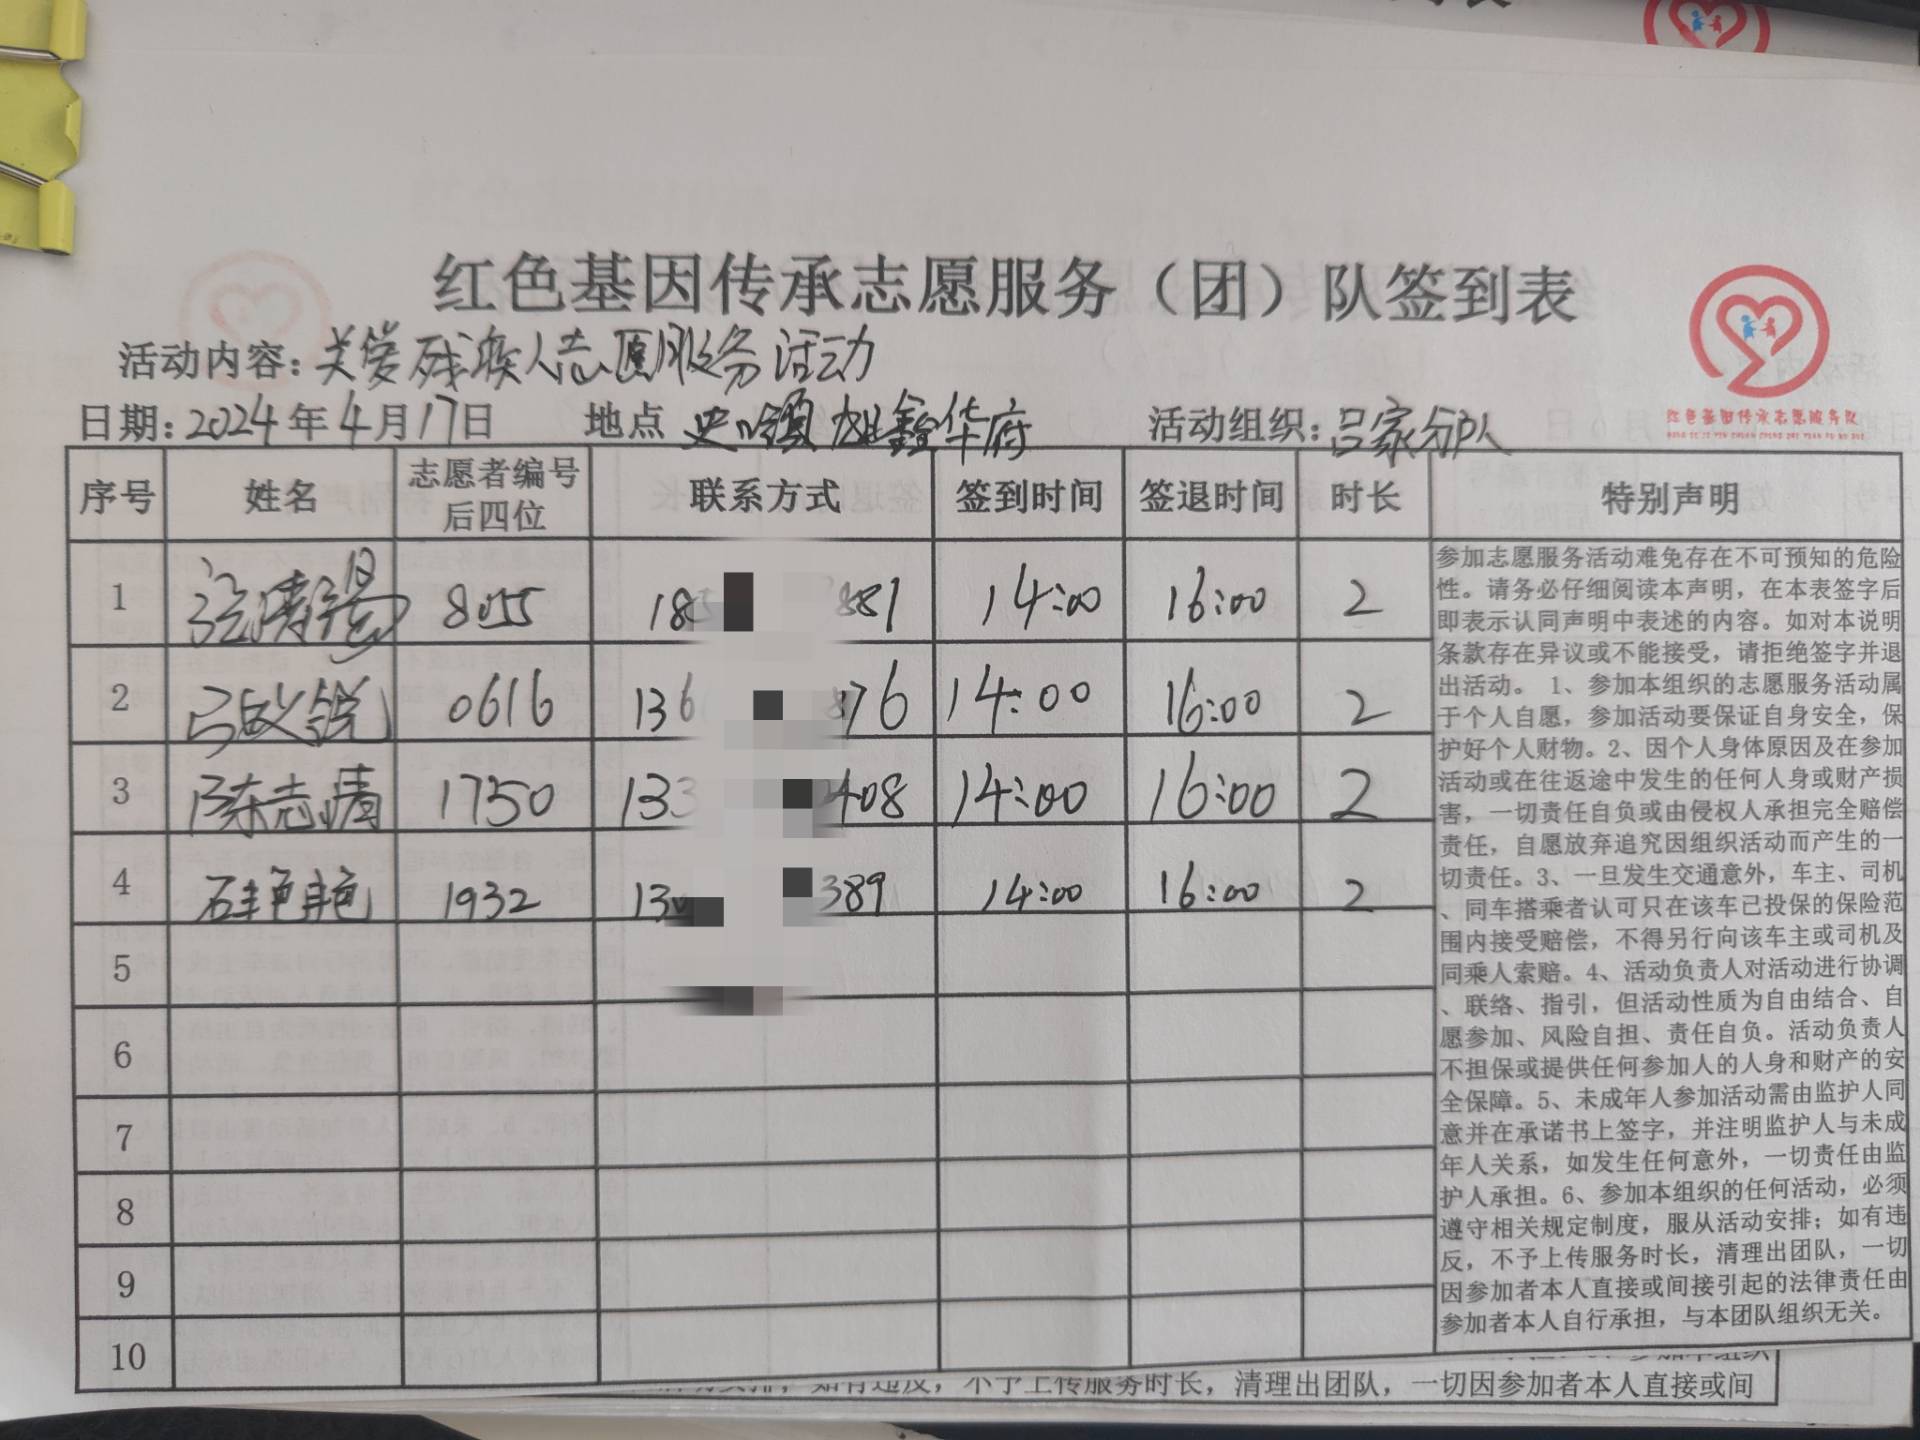 红色基因传承志愿服务（团）队签到表
活动内容：关爱残疾人志愿服务活动
日期：2024年4月17日 地点 史口镇 雄鑫华府 活动组织：吕家分队
红色基因传承志愿服务队
序号 姓名 志愿者编号后四位 联系方式 签到时间 签退时间 时长 特别声明
1 8055 18 881 14:00 16:00 2
2 0616 136 76 14:00 16:00 2
3 陈志清 1750 133 408 14:00 16:00 2
4 石艳艳 1932 130 389 14:00 16:00 2
5
6
7
8
9
10
参加志愿服务活动难免存在不可预知的危险
性。请务必仔细阅读本声明，在本表签字后
即表示认同声明中表述的内容。如对本说明
条款存在异议或不能接受，请拒绝签字并退
出活动。 1、参加本组织的志愿服务活动属
于个人自愿，参加活动要保证自身安全，保
护好个人财物。2、因个人身体原因及在参加
活动或在往返途中发生的任何人身或财产损
害，一切责任自负或由侵权人承担完全赔偿
责任，自愿放弃追究因组织活动而产生的一
切责任。3、一旦发生交通意外，车主、司机
、同车搭乘者认可只在该车已投保的保险范
围内接受赔偿，不得另行向该车主或司机及
同乘人索赔。4、活动负责人对活动进行协调
、联络、指引，但活动性质为自由结合、自
愿参加、风险自担、责任自负。活动负责人
不担保或提供任何参加人的人身和财产的安
全保障。5、未成年人参加活动需由监护人同
意并在承诺书上签字，并注明监护人与未成
年人关系，如发生任何意外，一切责任由监
护人承担。6、参加本组织的任何活动，必须
遵守相关规定制度，服从活动安排；如有违
反，不予上传服务时长，清理出团队，一切
因参加者本人直接或间接引起的法律责任由
参加者本人自行承担，与本团队组织无关。
如有违反，不予上传服务时长，清理出团队，一切因参加者本人直接或间